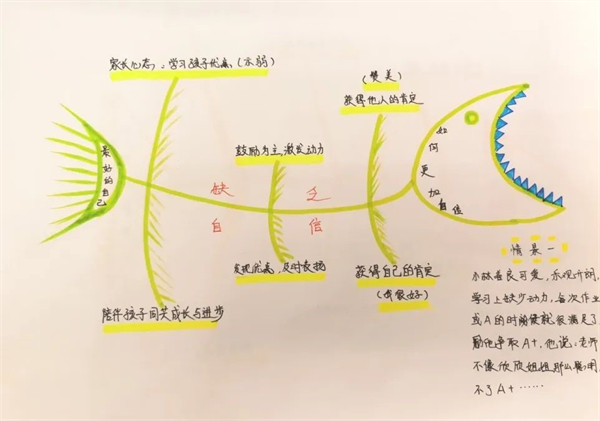 家长心态：学习孩子优点（示弱）
（赞美）
获得他人的肯定
鼓励为主，激发动力
最好的自己
缺乏
自信
如何更加自信
发现优点，及时表扬
获得自己的肯定
（我很好）
陪伴孩子同共成长与进步
情景一
善良可爱，乐观开朗，
学习上缺少动力，每次作业
或A的时候就很满足了
励他争取A+，他说：老师
不像欣欣姐姐那么聪明
不了A+……